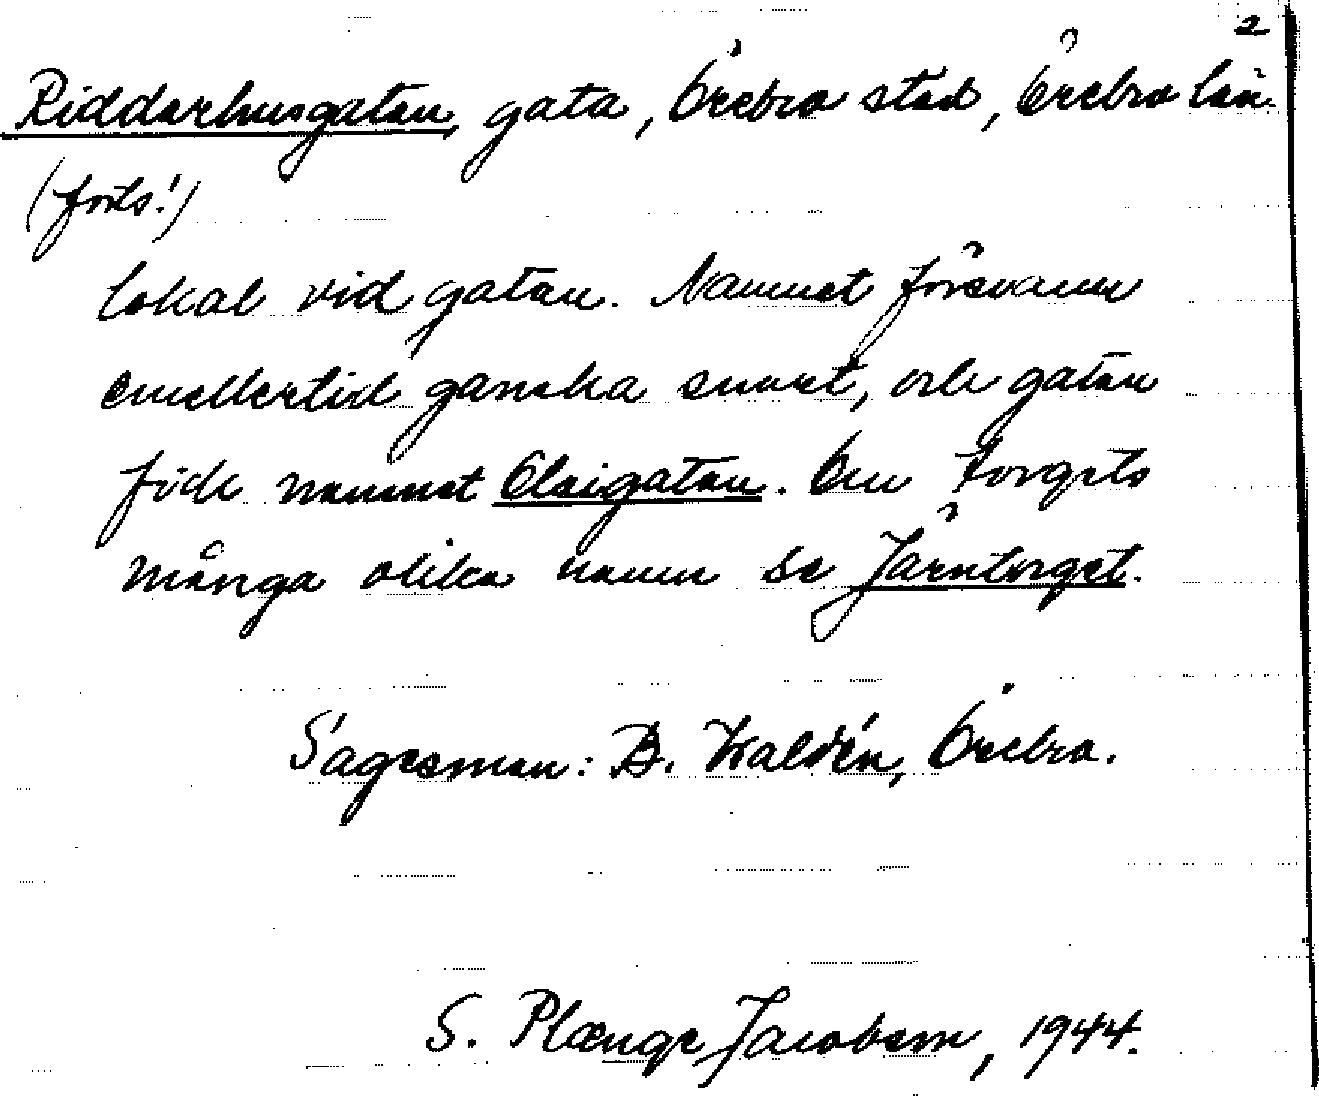 2
Riddarhusgatan, gata, Örebro stad, Örebro län.
(forts.!)
lokal vid gatan. Namnet försvann
emellertid ganska snart, och gatan
fick namnet Olaigatan. Om torgets
många olika namn se Järntorget.
Sagesman: B. Waldén, Örebro.
S. Plænge Jacobson, 1944.